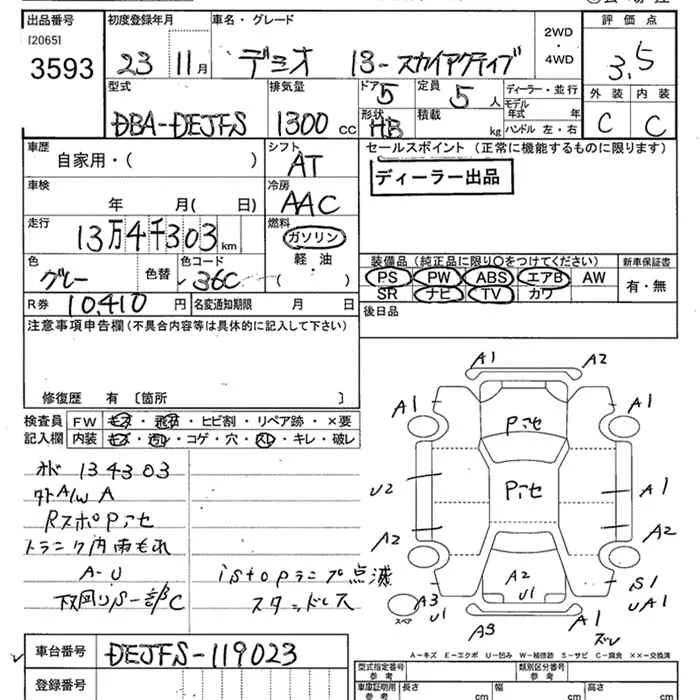 出品番号 初度登録年月 車名・グレード 評価点
[2065]
3593
23 11月 デミオ 13-スカイアクティブ 2WD・4WD 3.5
型式 排気量 ドア 5 定員 5人 ディーラー・並行 外装 内装
DBA-DEJFS 1300cc 形状 HB 積載 kg モデル年式 年 C C
ハンドル 左・右
車歴 シフト セールスポイント(正常に機能するものに限ります)
自家用・( ) AT ディーラー出品
車検 冷房
年 月( 日) AAC
走行 燃料
13万4千303km ガソリン
軽油
( )
装備品(純正品に限り○をつけてください) 新車保証書
PS PW ABS エアB AW 有・無
SR ナビ TV カワ
色 色替 色コード
グレー 36C
R券 10,410円 名変通知期限 月 日
後日品
注意事項申告欄(不具合内容等は具体的に記入して下さい)
修復歴 有 〔箇所 〕
検査員 FW キズ・飛石・ヒビ割・リペア跡・×要
記入欄 内装 キズ・汚レ・コゲ・穴・スレ・キレ・破レ
オド 134303
外A/W A
RスポPセ
トランク内雨もれ
A-U
下回りS一部C
istopランプ点滅
スタッドレス
A1 A2
A1 A1
Pセ
U2 Pセ A1
A2 A2
A2
U1
S1
UA1
スペア A3
U1
A3 A1
ズレ
A-キズ E-エクボ U-凹み W-補修跡 S-サビ C-腐食 ××-交換済
車台番号 DEJFS-119023
登録番号
型式指定番号 参考 類別区分番号 参考
車庫証明用 参考 長さ cm 幅 cm 高さ cm